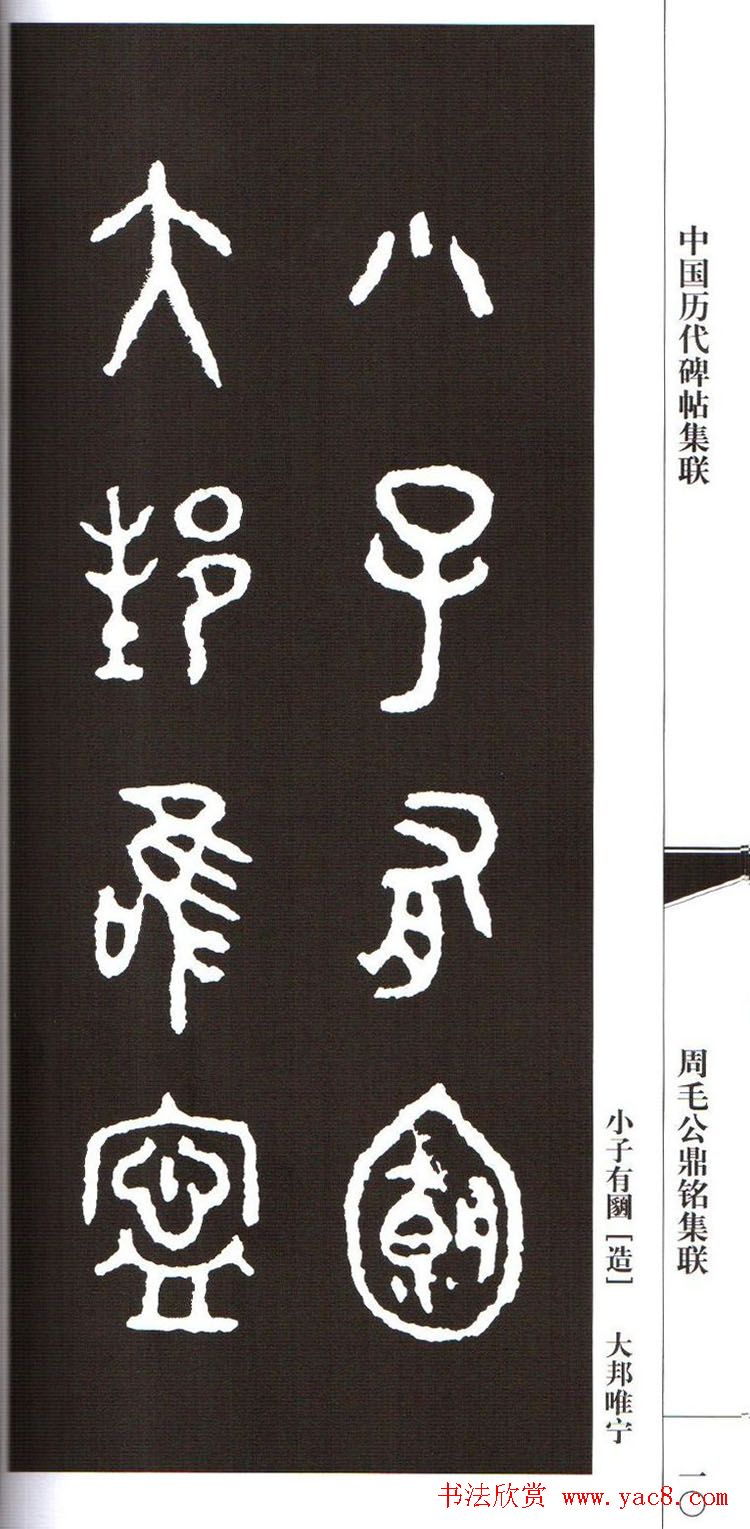 中国历代碑帖集联
周毛公鼎铭集联
一〇
小子有［造］ 大邦唯宁
小子有
大邦唯宁
书法欣赏 www.yac8.com